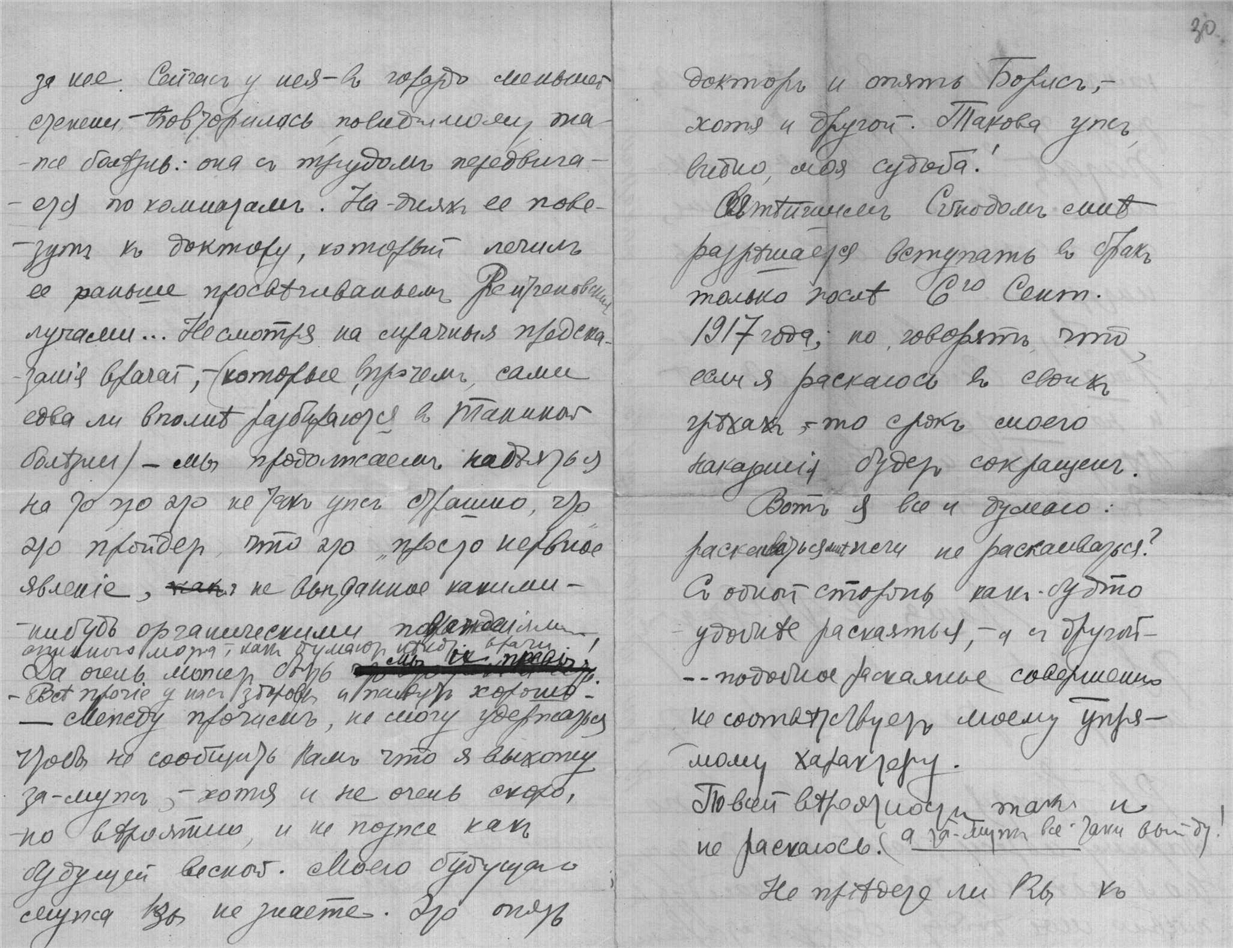 за нее. Сейчасъ у нея – въ гораздо меньшей
степени – повторилась, повидимому, та-
-же болѣзнь: она съ трудомъ передвига-
-ется по комнатамъ. На-дняхъ ее пове-
-зутъ къ доктору, который лечилъ
ее раньше просвѣчиваньемъ Рентгеновскими
лучами... Несмотря на мрачныя предска-
-занія врачей, – (которые, впрочемъ, сами
едва ли вполнѣ разбираются въ Таниной
болѣзни) – мы продолжаемъ надѣяться
на то что это не такъ ужъ страшно, что
это пройдетъ, что это „просто нервное
явленіе, не вызванное какими-
-нибудь органическими
мозга, какъ думаютъ врачи!
Да очень можетъ быть
– Всѣ прочіе у насъ здоровы и живутъ хорошо –
– Между прочимъ, не могу удержаться
чтобъ не сообщить Вамъ что я выхожу
за-мужъ, – хотя и не очень скоро,
-но вѣроятно, и не позже какъ
будущей весной. Моего будущаго
мужа Вы не знаете. Это опять
30.
докторъ и опять Борисъ, –
хотя и другой. Такова ужъ,
видно, моя судьба!
Святѣйшимъ Сѵнодомъ мнѣ
разрѣшается вступать въ бракъ
только послѣ 6го Сент.
1917 года; но, говорятъ, что,
если я раскаюсь въ своихъ
грѣхахъ, – то срокъ моего
наказанія будетъ сокращенъ.
Вотъ я все и думаю:
раскаиваться или не раскаиваться?
Съ одной стороны какъ-будто
удобнѣе раскаяться, – а съ другой –
-- подобное раскаянье совершенно
не соотвѣтствуетъ моему упря-
-мому характеру.
По всей вѣроятности такъ и
не раскаюсь. (а за-мужъ все-таки выйду!
Не пріѣдете ли Вы къ